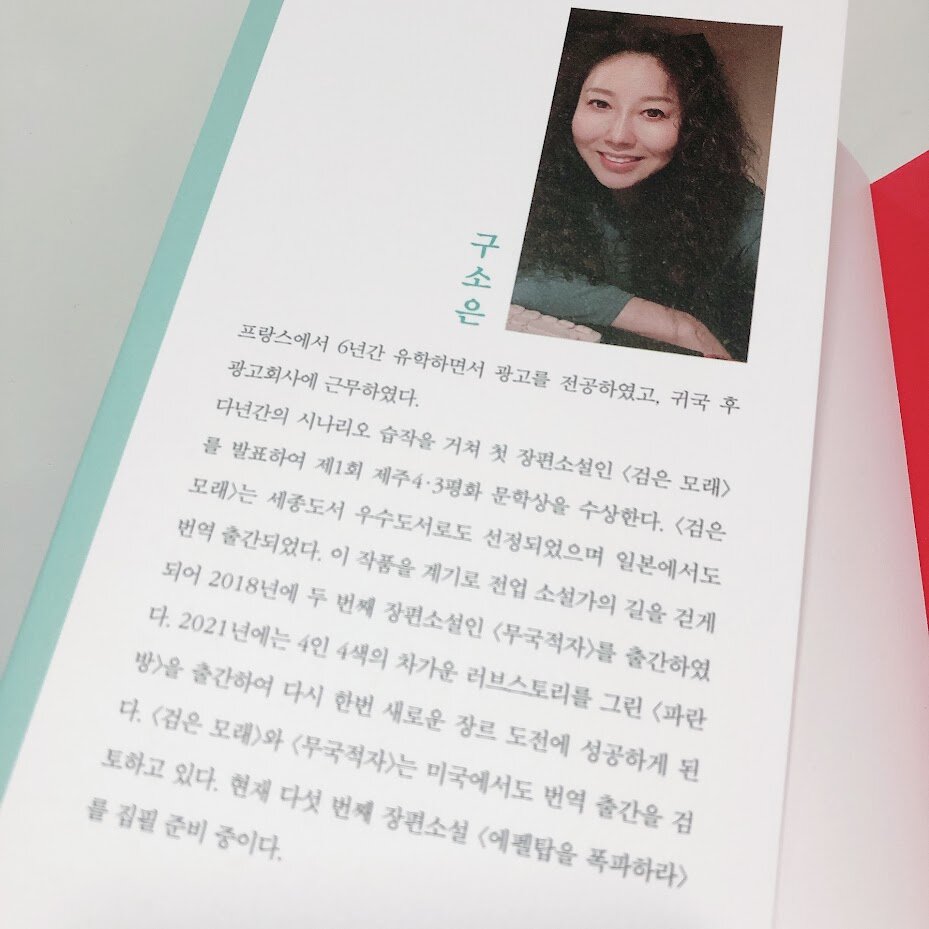 구소은
프랑스에서 6년간 유학하면서 광고를 전공하였고, 귀국 후
광고회사에 근무하였다.
다년간의 시나리오 습작을 거쳐 첫 장편소설인 〈검은 모래〉
를 발표하여 제1회 제주4·3평화 문학상을 수상한다. 〈검은
모래〉는 세종도서 우수도서로도 선정되었으며 일본에서도
번역 출간되었다. 이 작품을 계기로 전업 소설가의 길을 걷게
되어 2018년에 두 번째 장편소설인 〈무국적자〉를 출간하였
다. 2021년에는 4인 4색의 차가운 러브스토리를 그린 〈파란
방〉을 출간하여 다시 한번 새로운 장르 도전에 성공하게 된
다. 〈검은 모래〉와 〈무국적자〉는 미국에서도 번역 출간을 검
토하고 있다. 현재 다섯 번째 장편소설 〈에펠탑을 폭파하라〉
를 집필 준비 중이다.